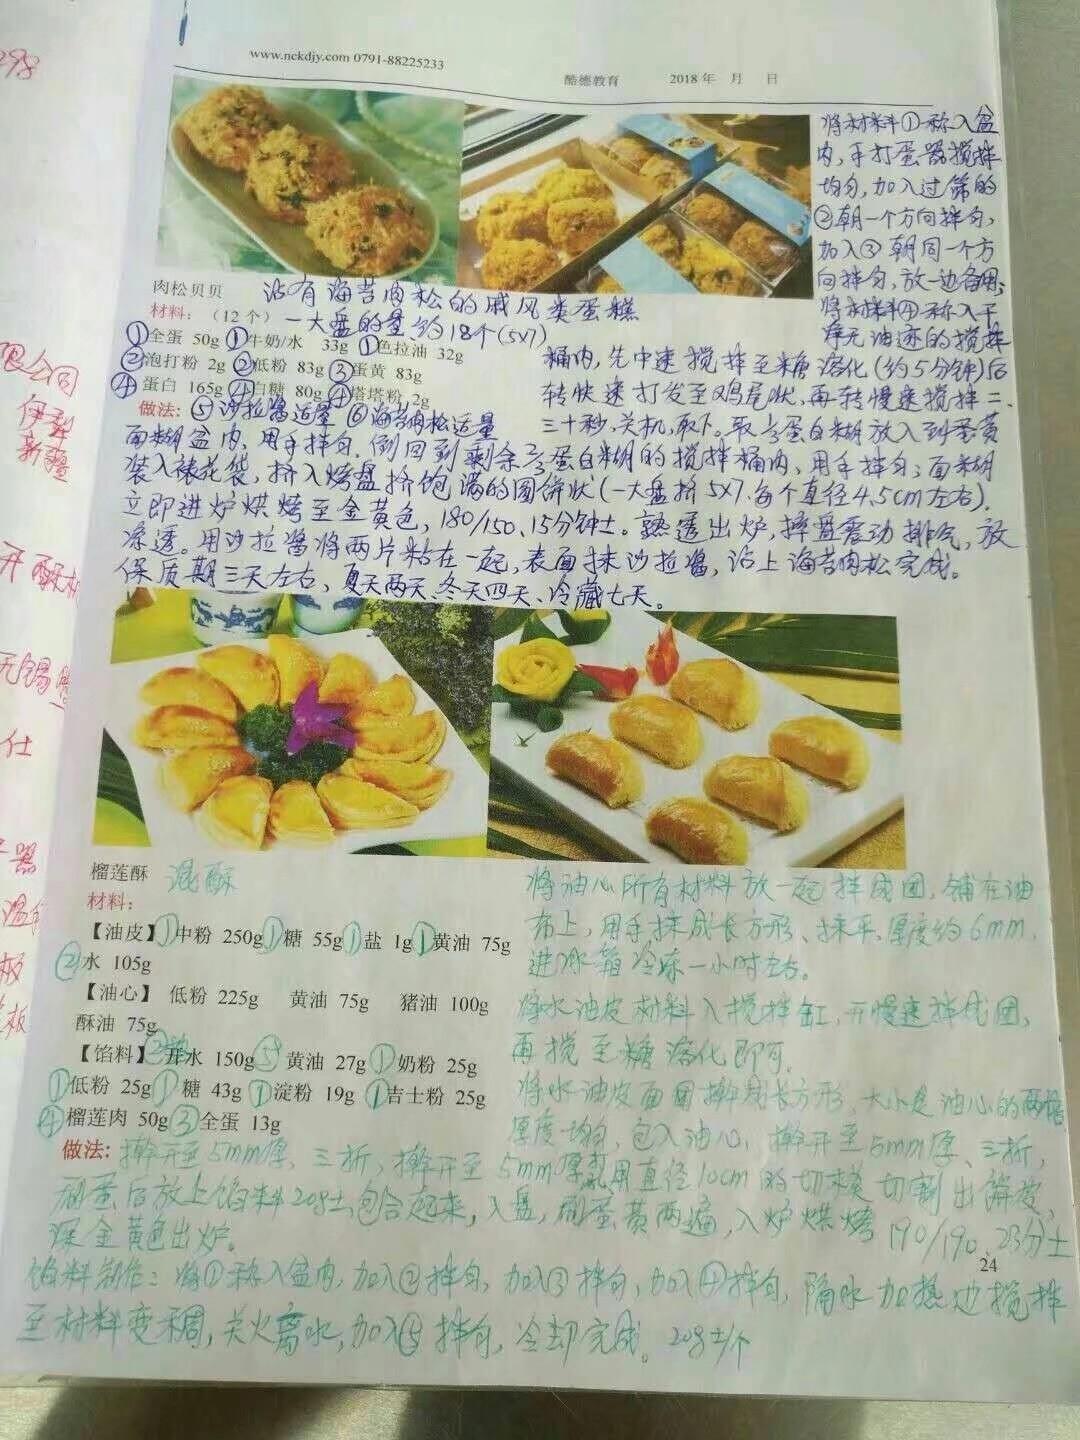 www.nckdjy.com 0791-88225233
酷德教育 2018 年 月 日
将材料①称入盆
内,手打蛋器搅拌
均匀,加入过筛的
②朝一个方向拌匀,
加入③朝同一个方
向拌匀,放一边备用;
将材料④称入干
净无油迹的搅拌
肉松贝贝 沾有海苔肉松的戚风类蛋糕
材料:(12 个)一大盘的量约18个(5x7)
①全蛋 50g ①牛奶/水 33g ①色拉油 32g
②泡打粉 2g ②低粉 83g ③蛋黄 83g
④蛋白 165g ④白糖 80g ④塔塔粉 2g
做法:⑤沙拉酱适量 ⑥海苔肉松适量
桶内,先中速搅拌至糖溶化(约5分钟)后
转快速打发至鸡尾状,再转慢速搅拌二、
三十秒,关机,取下。取⅓蛋白糊放入到蛋黄
面糊盆内,用手拌匀.倒回到剩余⅔蛋白糊的搅拌桶内,用手拌匀;面糊
装入裱花袋,挤入烤盘挤饱满的圆饼状(一大盘挤5x7.每个直径4.5cm左右).
立即进炉烘烤至金黄色,180/150、15分钟±。熟透出炉,摔盘震动排气,放
凉透。用沙拉酱将两片粘在一起,表面抹沙拉酱,沾上海苔肉松完成。
保质期三天左右,夏天两天、冬天四天、冷藏七天。
榴莲酥 混酥
材料:
【油皮】①中粉 250g ①糖 55g ①盐 1g ①黄油 75g
②水 105g
【油心】 低粉 225g 黄油 75g 猪油 100g
酥油 75g
【馅料】②开水 150g ⑤黄油 27g ①奶粉 25g
①低粉 25g ①糖 43g ①淀粉 19g ①吉士粉 25g
④榴莲肉 50g ③全蛋 13g
将油心所有材料放一起拌成团,铺在油
布上,用手抹成长方形、抹平、厚度约6mm,
进冰箱冷冻一小时左右。
将水油皮材料入搅拌缸,开慢速拌成团,
再搅至糖溶化即可.
将水油皮面团擀成长方形,大小是油心的两倍
厚度均匀,包入油心,擀开至5mm厚、三折,
做法:擀开至5mm厚、三折,擀开至5mm厚,用直径10cm的切模切割出饼皮,
刷蛋后放上馅料20g±包合起来,入盘,刷蛋黄两遍,入炉烘烤190/190、23分±
深金黄色出炉。
24
馅料制作:将①称入盆内,加入②拌匀,加入③拌匀,加入④拌匀,隔水加热边搅拌
至材料变稠,关火离水,加入⑤拌匀,冷却完成。20g±/个
298
公司
伊犁
新疆
开酥
无锡
仕
器
板
板